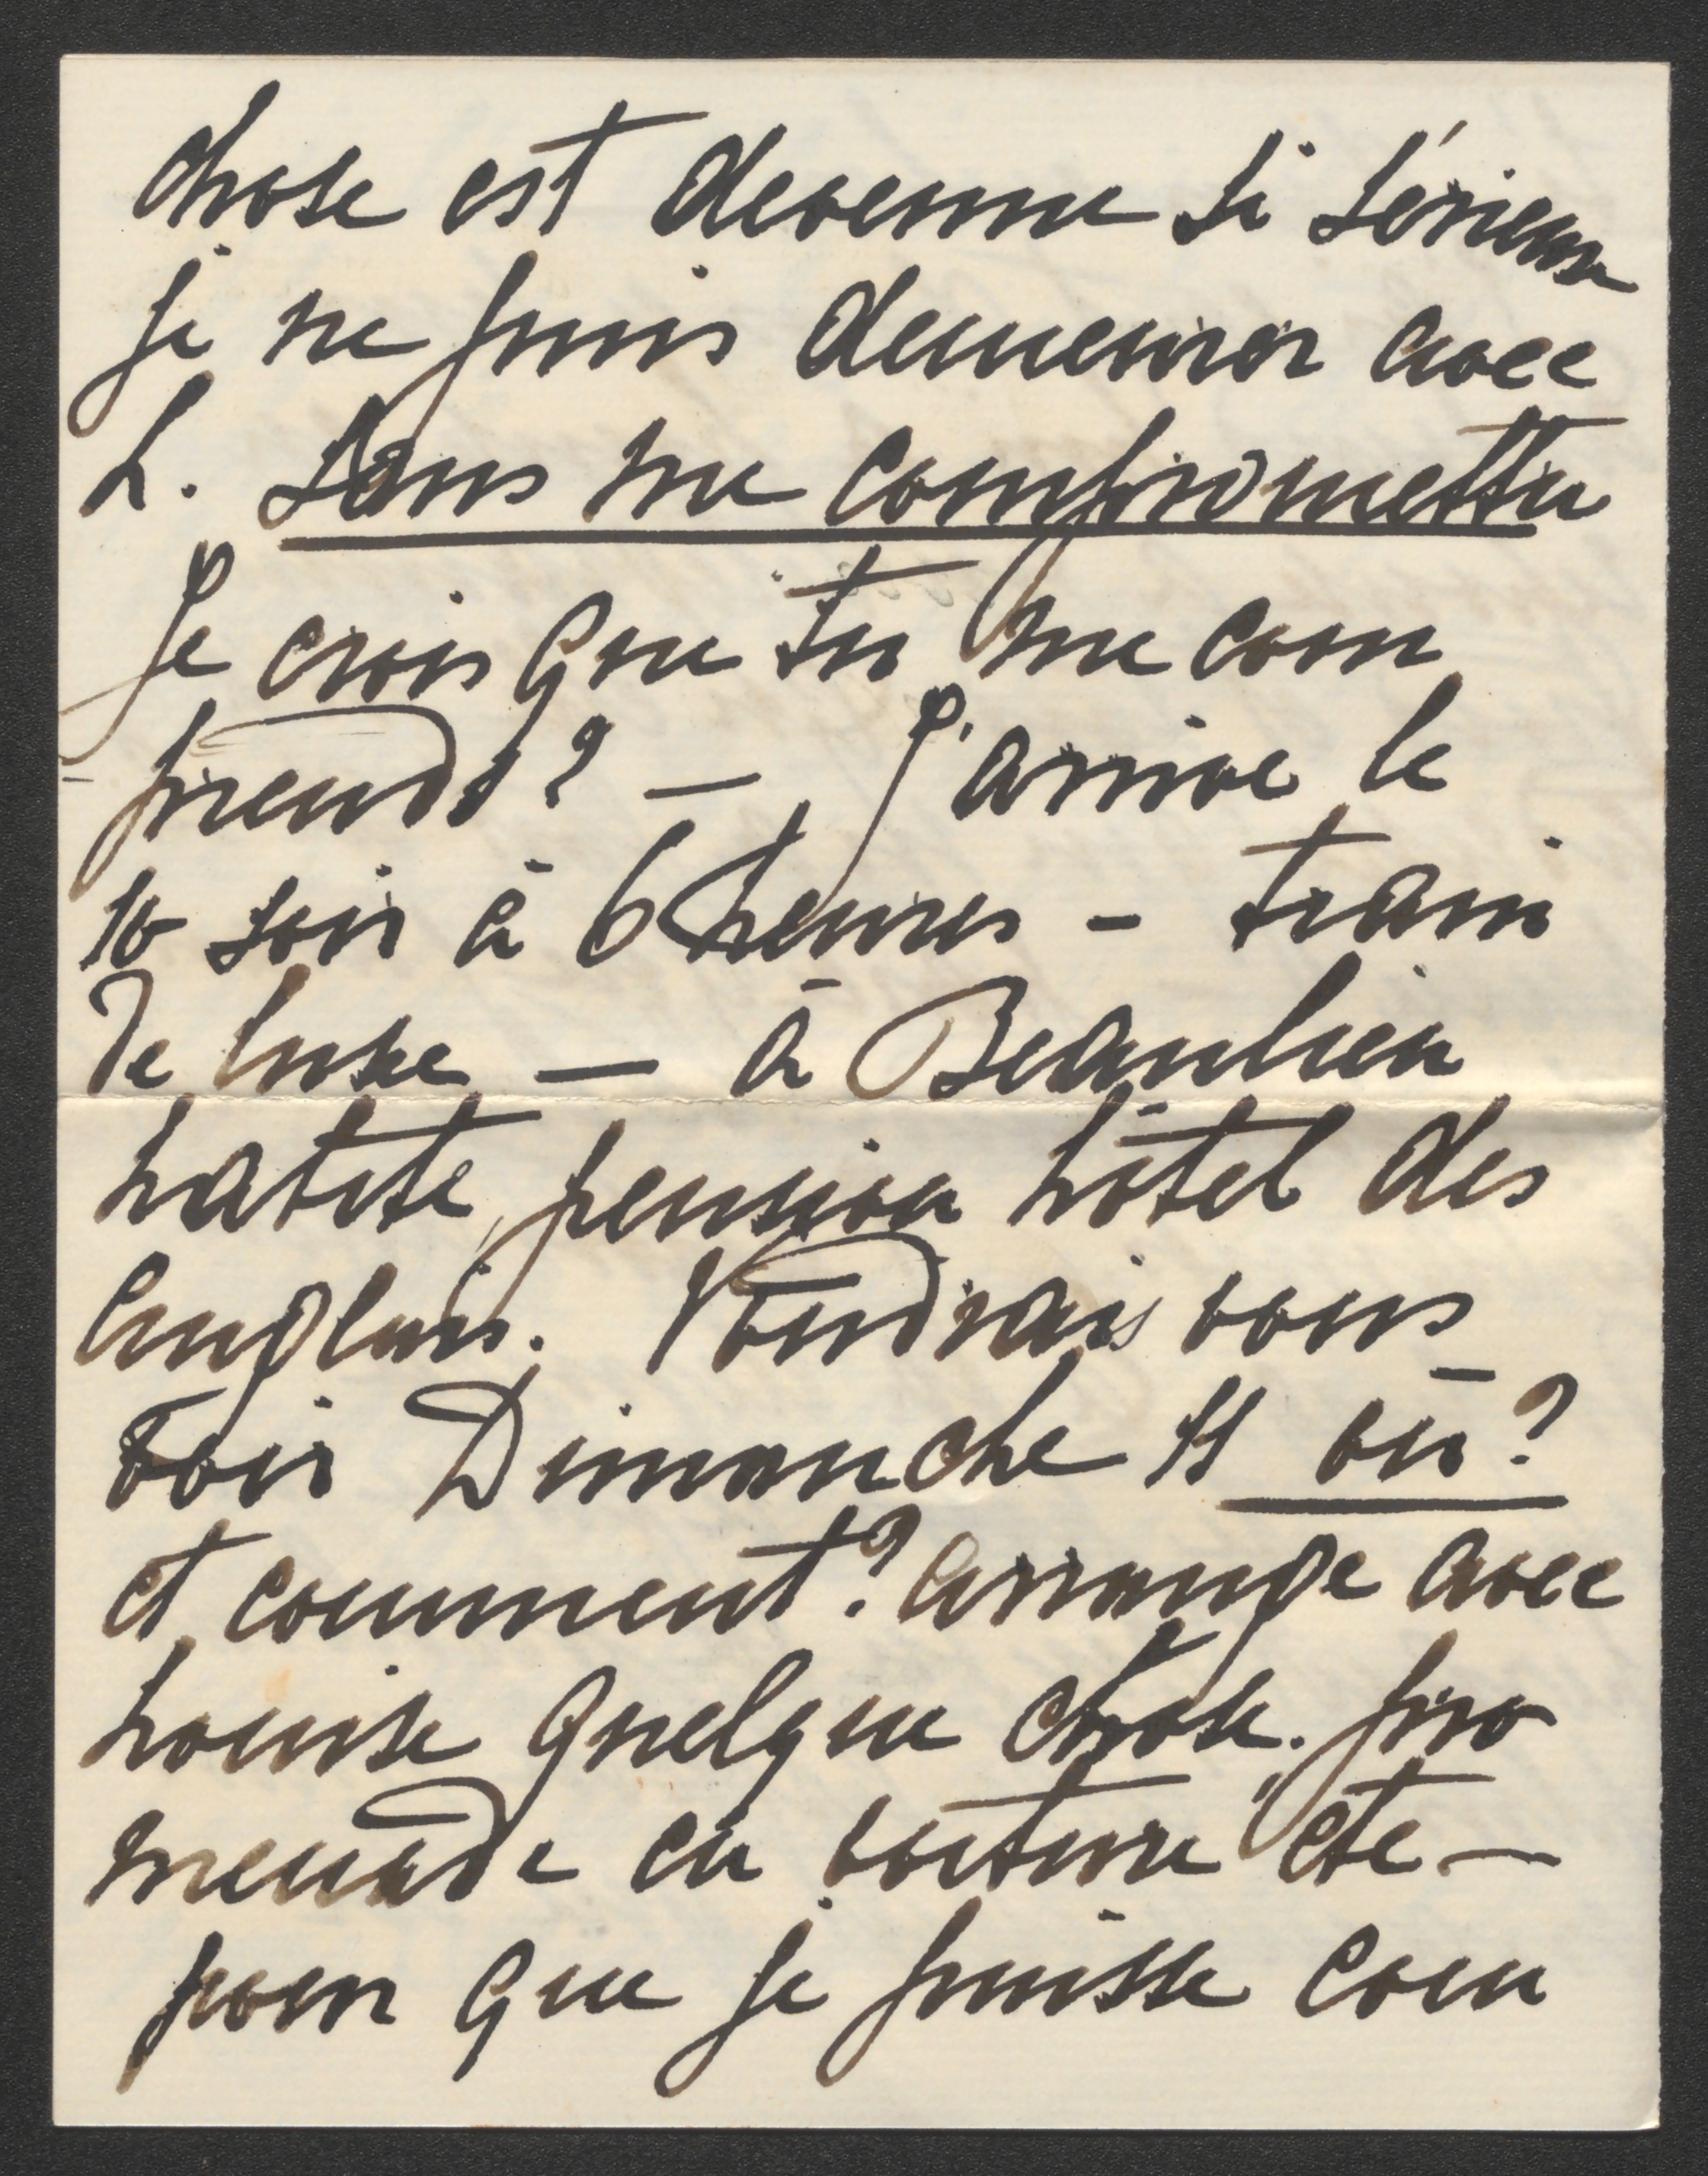 chose est devenue si sérieuse
je ne puis demeurer avec
L. sans me compromettre
Je crois que tu me com
prends? — J'arrive le
10 soir à 6 heures - train
de luxe — à Beaulieu
habite pension hôtel des
Anglais. Voudrais vous
voir Dimanche 11 où?
et comment? arrange avec
Louise quelque chose. pro
menade en voiture etc —
pour que je puisse cou